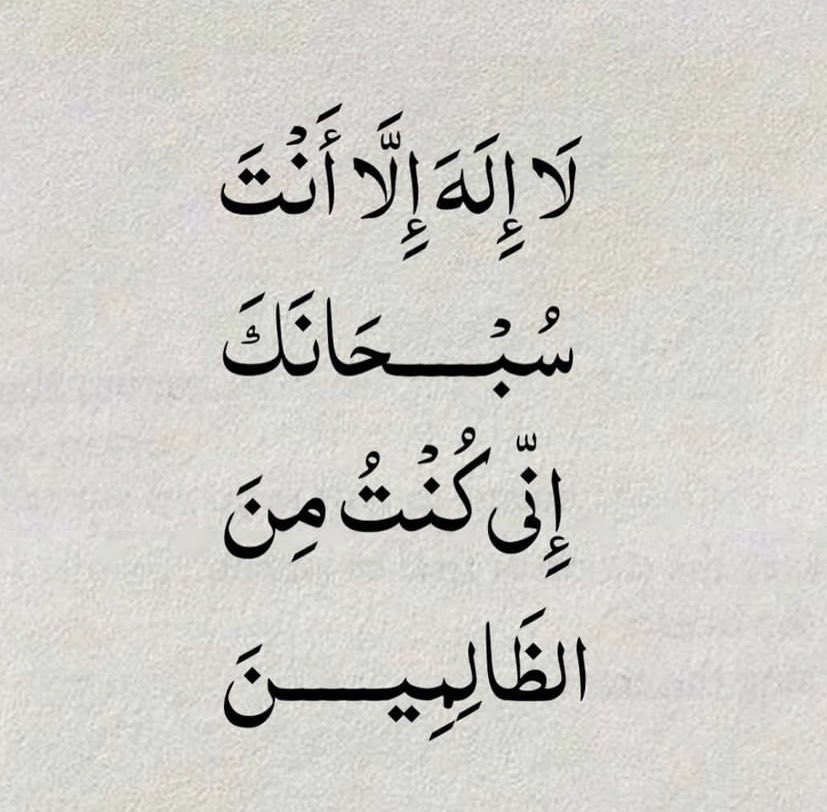 لَا إِلَهَ إِلَّا أَنْتَ
سُبْـــحَانَكَ
إِنّى كُنْتُ مِنَ
الظَالِمِيـــنَ